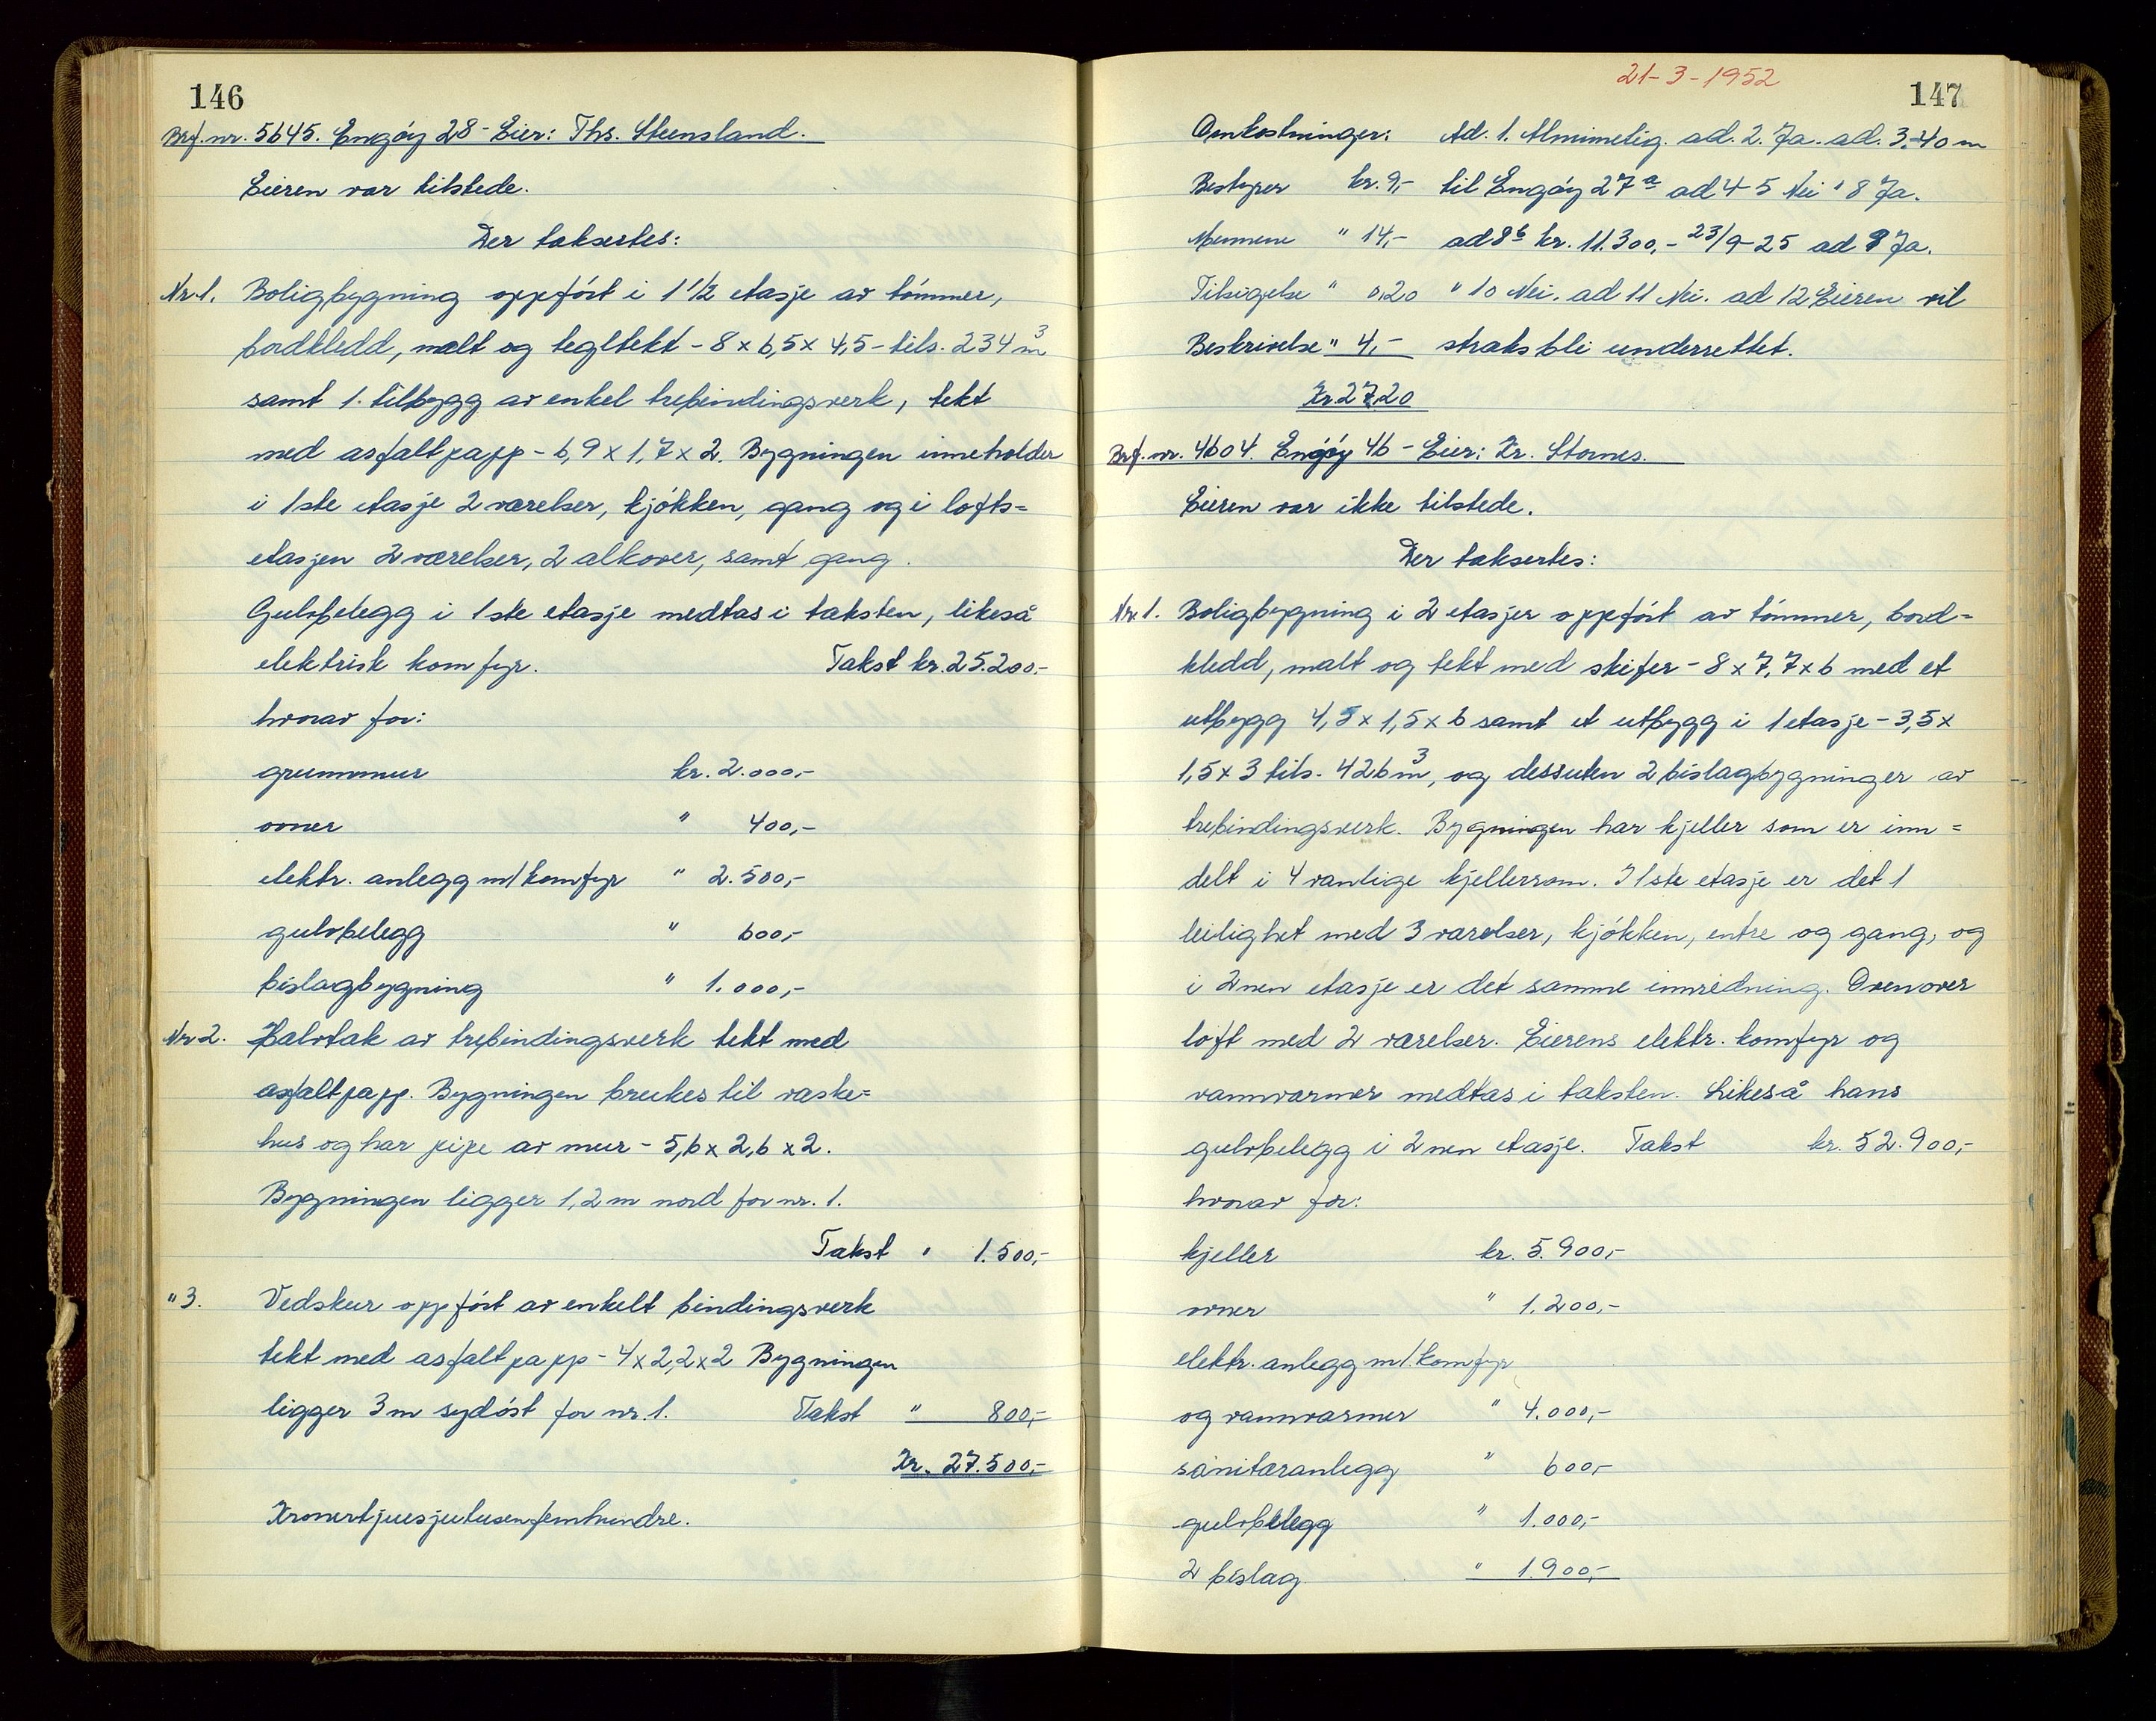 146
Brf. nr. 5645. Engøy 28 - Eier: Ths. Steensland.
Eieren var tilstede.
Der taksertes:
Nr. 1. Boligbygning oppført i 1 1/2 etasje av tømmer,
bordkledd, malt og tegltekt - 8 x 6,5 x 4,5 - tils. 234 m³
samt 1. tilbygg av enkel trebindingsverk, tekt
med asfaltpapp - 6,9 x 1,7 x 2. Bygningen inneholder
i 1ste etasje 2 værelser, kjøkken, gang og i lofts=
etasjen 2 værelser, 2 alkover, samt gang.
Gulvbelegg i 1ste etasje medtas i taksten, likeså
elektrisk komfyr. Takst kr. 25.200.-
hvorav for:
grunnmur kr. 2.000,-
ovner " 400,-
elektr. anlegg m/komfyr " 2.500,-
gulvbelegg " 600,-
bislagbygning " 1.000,-
Nr 2. Halvtak av trebindingsverk tekt med
asfaltpapp. Bygningen brukes til vaske=
hus og har pipe av mur - 5,6 x 2,6 x 2.
Bygningen ligger 1,2 m nord for nr. 1.
Takst " 1.500,-
" 3. Vedskur oppført av enkelt bindingsverk
tekt med asfaltpapp - 4 x 2,2 x 2 Bygningen
ligger 3 m sydøst for nr. 1. Takst " 800,-
Kr. 27.500,-
Kronertjuesjutusenfemhundre.
21-3-1952
147
Omkostninger: Ad. 1. Almimelig. ad. 2. Ja. ad. 3.-40 m
Bestyrer kr. 9,- til Engøy 27 a ad 4-5 Nei " 8 Ja.
Mennene " 14,- ad 8 b kr. 11.300,- 23/9-25 ad 9 Ja.
Tilsigelse " 0,20 " 10 Nei. ad 11 Nei. ad 12 Eieren vil
Beskrivelse " 4,- straks bli underrettet.
Kr. 27,20
Brf. nr. 4604. Engøy 46 - Eier: Kr. Stornes.
Eieren var ikke tilstede.
Der taksertes:
Nr. 1. Boligbygning i 2 etasjer oppført av tømmer, bord=
kledd, malt og tekt med skifer - 8 x 7,7 x 6 med et
utbygg 4,5 x 1,5 x 6 samt et utbygg i 1 etasje - 3,5 x
1,5 x 3 tils. 426 m³, og dessuten 2 bislagbygninger av
trebindingsverk. Bygningen har kjeller som er inn=
delt i 4 vanlige kjellerrom. I 1ste etasje er det 1
leilighet med 3 værelser, kjøkken, entre og gang, og
i 2nen etasje er det samme innredning. Ovenover
loft med 2 værelser. Eierens elektr. komfyr og
vannvarmer medtas i taksten. Likeså hans
gulvbelegg i 2nen etasje. Takst kr. 52.900,-
hvorav for:
kjeller kr. 5.900,-
ovner " 1.200,-
elektr. anlegg m/.komfyr
og vannvarmer " 4.000,-
sanitæranlegg " 600,-
gulvbelegg " 1.000,-
2 bislag " 1.900,-